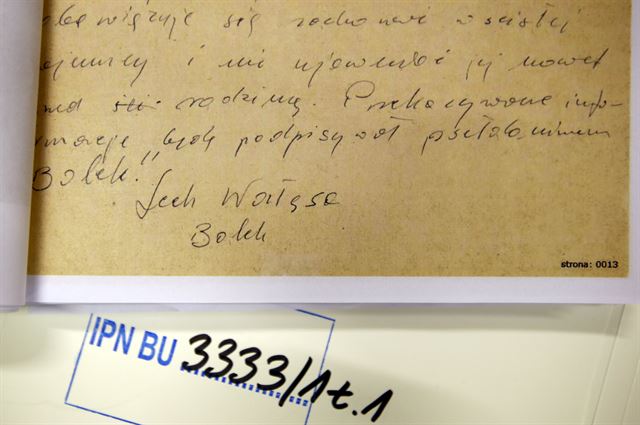 obowiązuję się zachować w ścisłej
tajemnicy i nie ujawniać jej nawet
rodziną. Przekazywane info-
rmacje będę podpisywał pseudonimem
Bolek."
Lech Wałęsa
Bolek
strona: 0013
IPN BU 3333/1 t.1